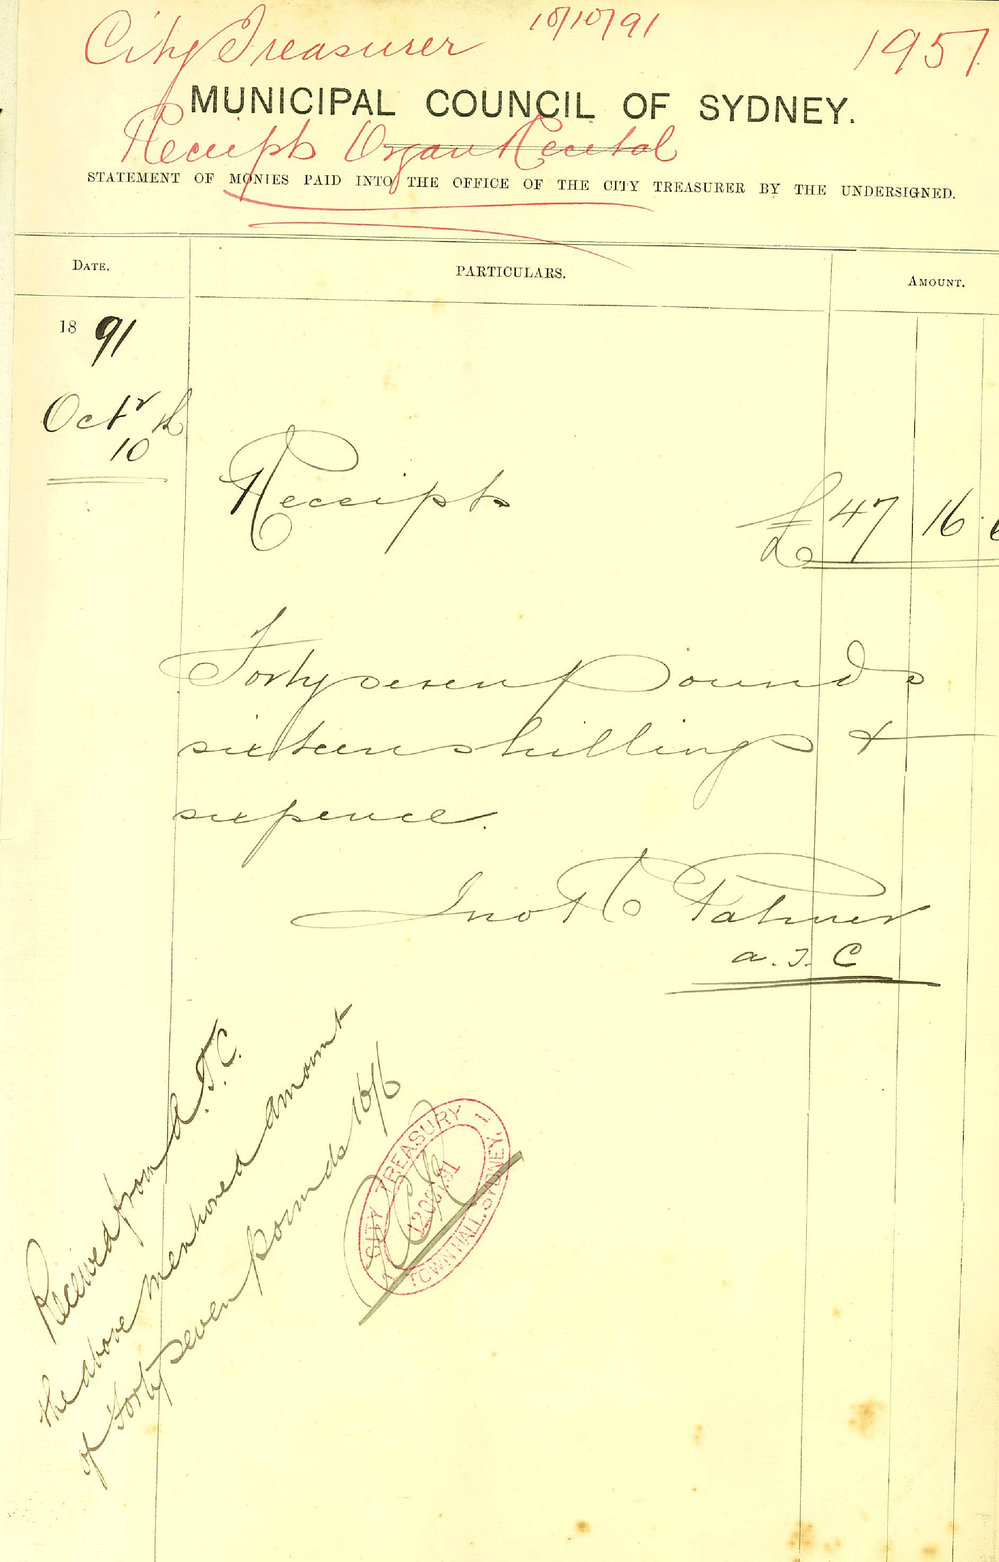 City Treasurer 10/10/91 1951
MUNICIPAL COUNCIL OF SYDNEY.
Receipts Organ Recital
STATEMENT OF MONIES PAID INTO THE OFFICE OF THE CITY TREASURER BY THE UNDERSIGNED.
DATE. PARTICULARS. AMOUNT.
18 91
Octr
10 th
Receipts £ 47 16 6
Forty seven Pounds
sixteen shillings &
sixpence.
Jno R Palmer
a. T. C
Received from A.T.C.
the above mentioned amount
of Forty seven pounds 16/6
CITY TREASURY
12 OCT 91
TOWN HALL, SYDNEY.